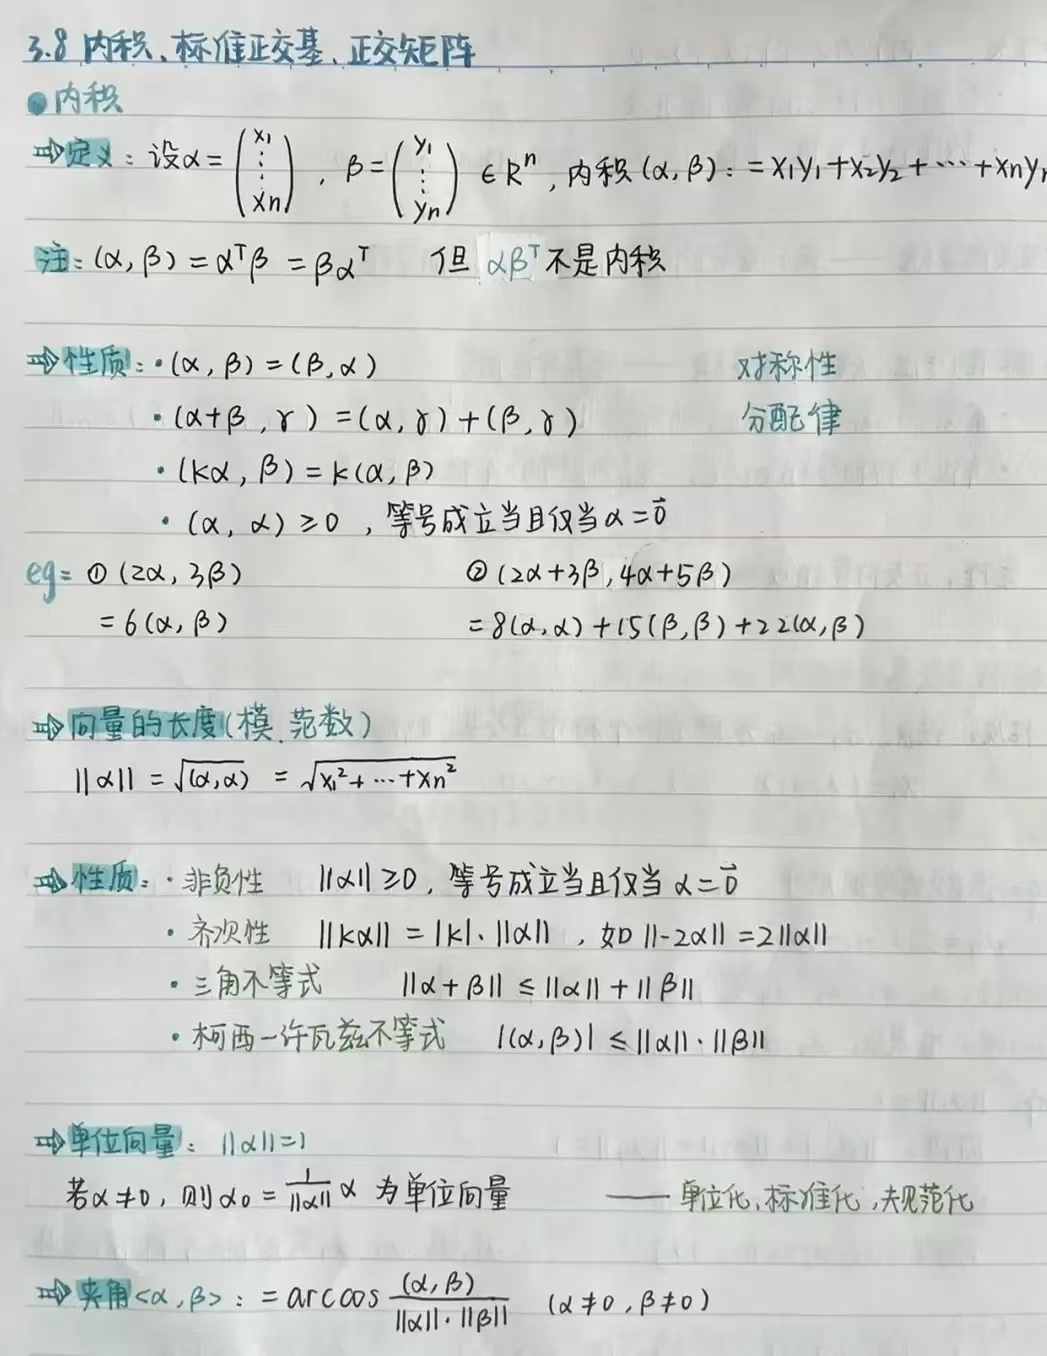 3.8 内积、标准正交基、正交矩阵
●内积
⇒定义：设α=(x₁ ⋮ xn)，β=(y₁ ⋮ yn)∈Rⁿ，内积(α,β)：=x₁y₁+x₂y₂+⋯+xnyn
注：(α,β)=αᵀβ=βαᵀ 但 αβᵀ不是内积
⇒性质：·(α,β)=(β,α) 对称性
·(α+β,γ)=(α,γ)+(β,γ) 分配律
·(kα,β)=k(α,β)
·(α,α)≥0，等号成立当且仅当α=0⃗
eg= ①(2α,3β) ②(2α+3β,4α+5β)
=6(α,β) =8(α,α)+15(β,β)+22(α,β)
⇒向量的长度(模、范数)
||α||=√(α,α) =√x₁²+⋯+xn²
⇒性质：·非负性 ||α||≥0，等号成立当且仅当α=0⃗
·齐次性 ||kα||=|k|·||α||，如||-2α||=2||α||
·三角不等式 ||α+β||≤||α||+||β||
·柯西一许瓦兹不等式 |(α,β)|≤||α||·||β||
⇒单位向量：||α||=1
若α≠0，则α₀=1/||α|| α 为单位向量 —— 单位化、标准化，规范化
⇒夹角<α,β>：=arccos (α,β)/||α||·||β|| (α≠0,β≠0)